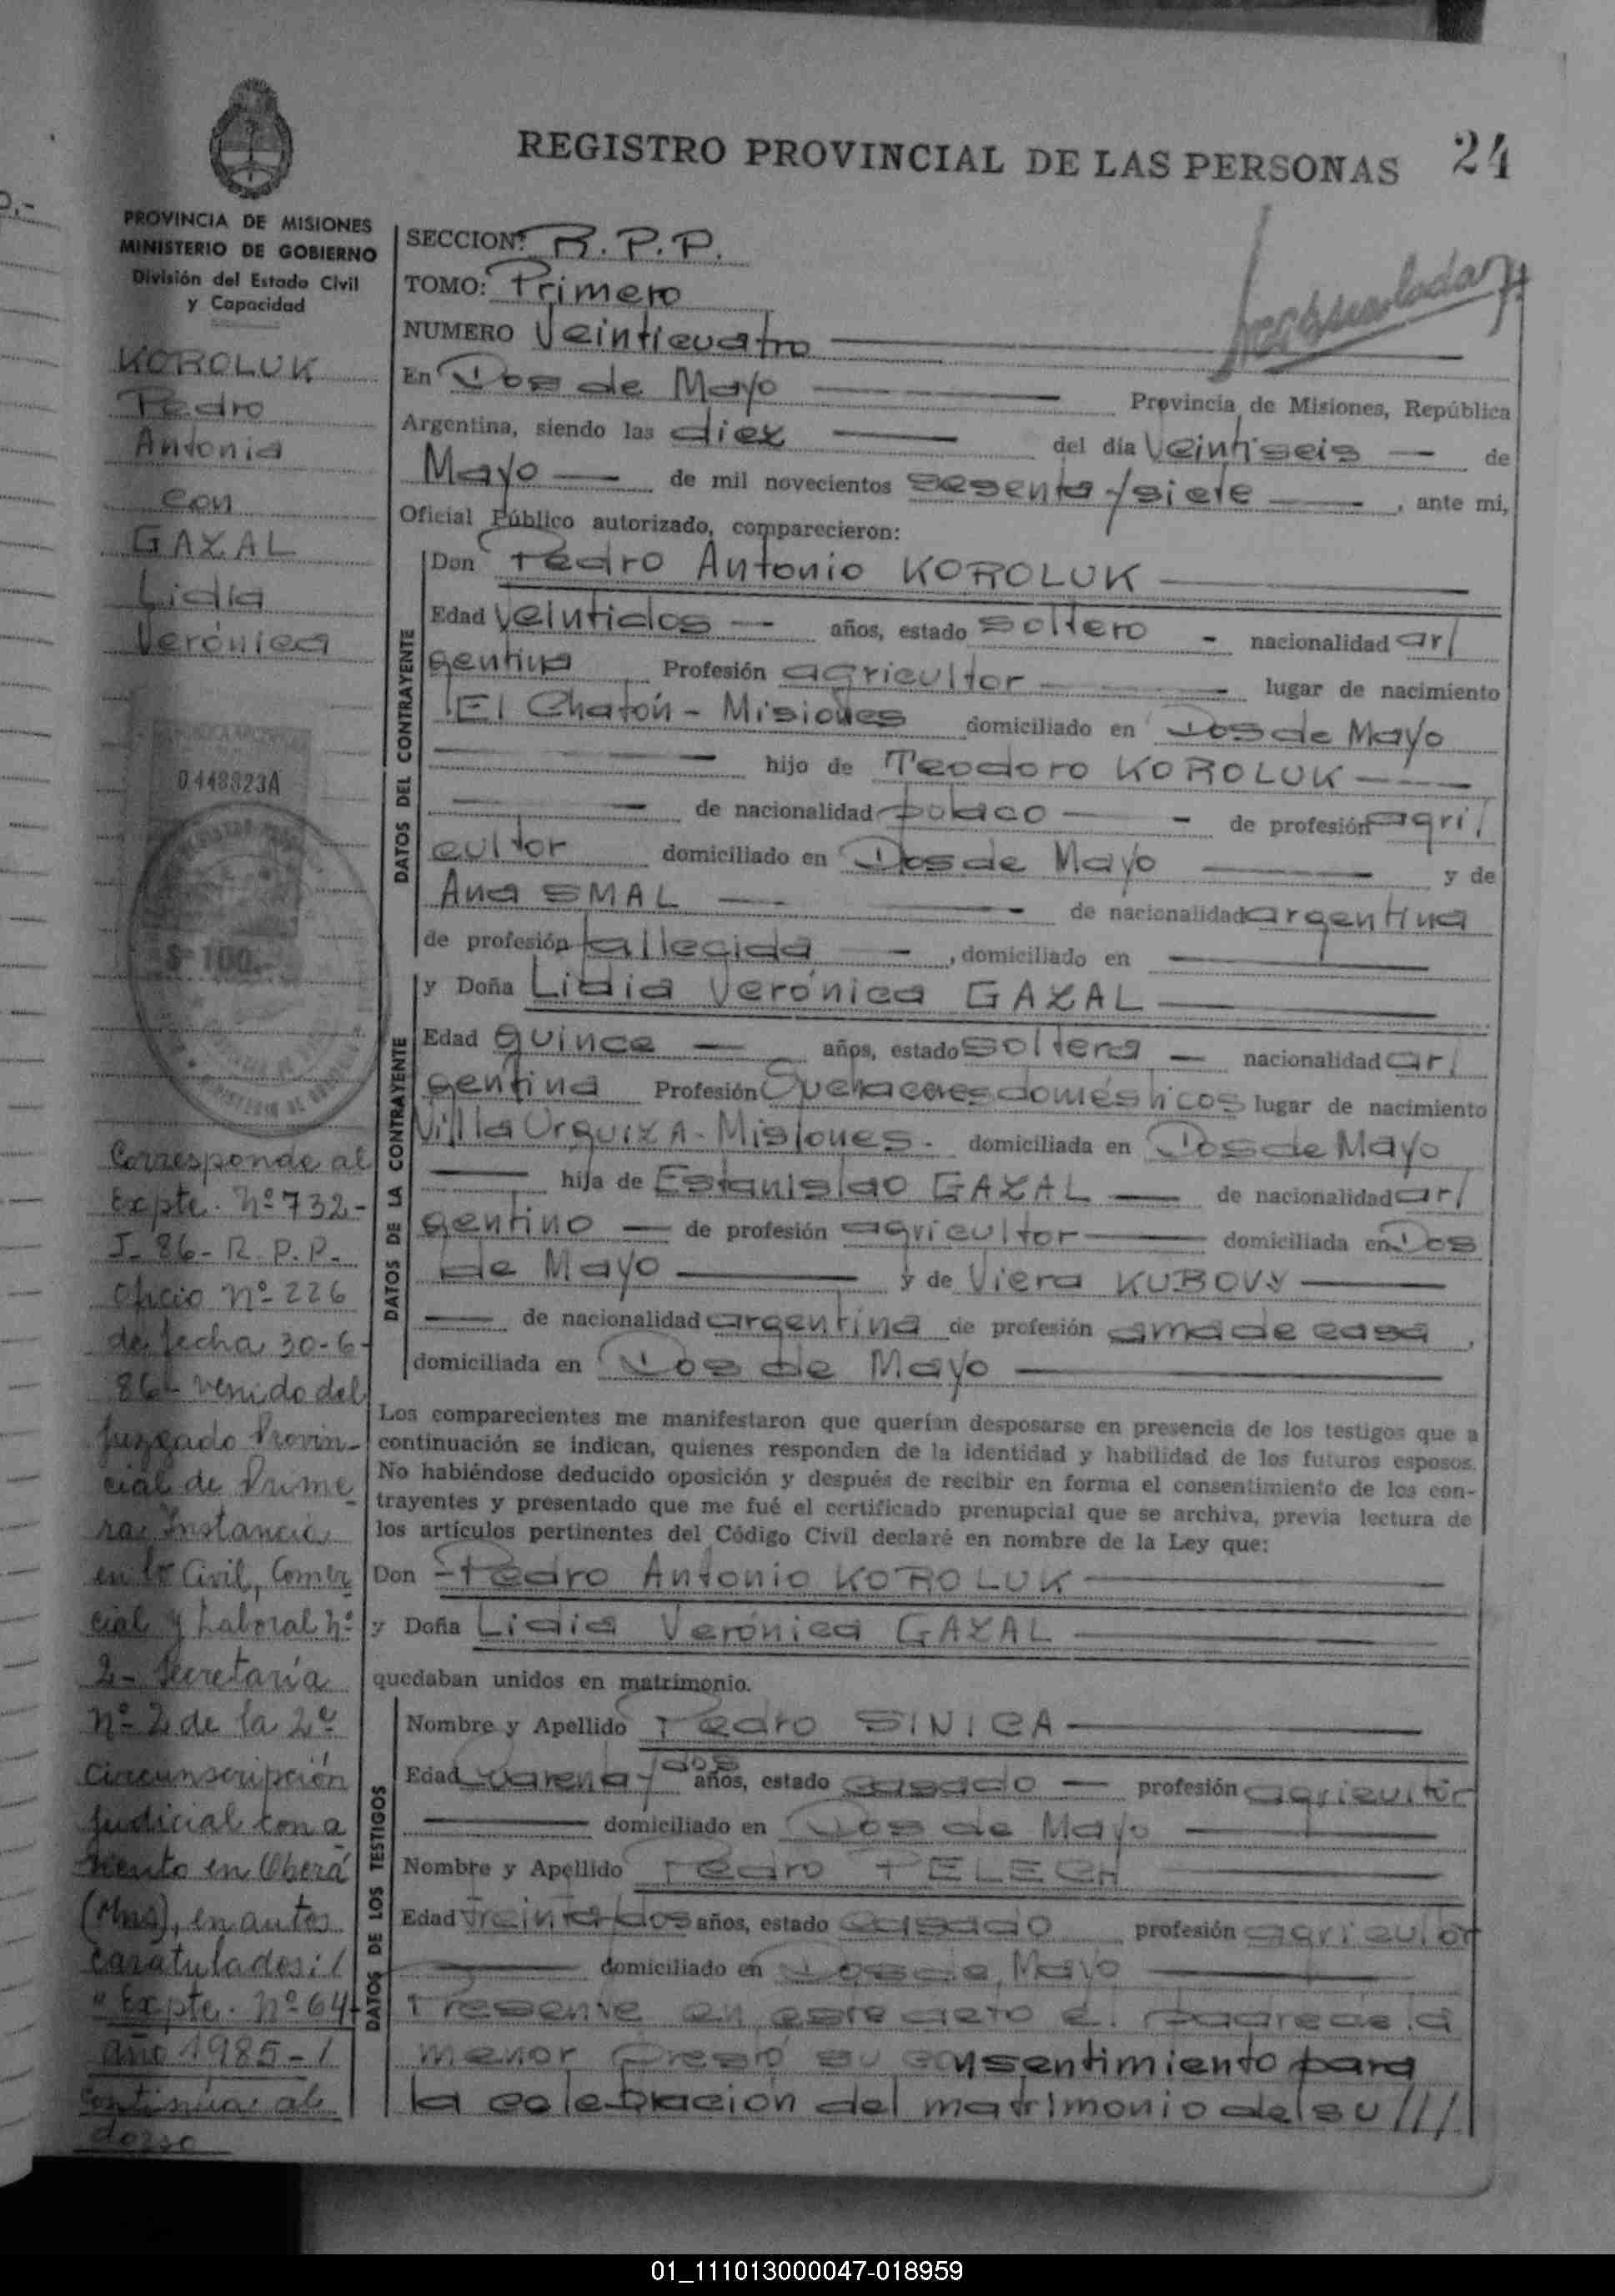 REGISTRO PROVINCIAL DE LAS PERSONAS 24
PROVINCIA DE MISIONES
MINISTERIO DE GOBIERNO
División del Estado Civil
y Capacidad
KOROLUK
Pedro
Antonio
con
GAZAL
Lidia
Verónica
0448823A
$ 100.-
Corresponde al
Expte. nº 732-
I-86-R.P.P.-
Oficio nº 226
de fecha 30-6-
86- venido del
Juzgado Provin-
cial de Prime
ra Instancia
en lo Civil, Comer
cial y Laboral nº
2- Secretaría
nº 2 de la 2ª
Circunscripción
Judicial con a
siento en Oberá
(Mnes), en autos
caratulados:/
"Expte. nº 64-
año 1985-/
Continúa al
dorso
SECCION: R.P.P.
TOMO: Primero
NUMERO Veinticuatro
En Dos de Mayo Provincia de Misiones, República
Argentina, siendo las diez del día Veintiseis de
Mayo de mil novecientos sesenta y siete, ante mi,
Oficial Público autorizado, comparecieron:
DATOS DEL CONTRAYENTE
Don Pedro Antonio KOROLUK
Edad Veintidos años, estado soltero - nacionalidad ar/
gentina Profesión agricultor lugar de nacimiento
El Chatón - Misiones domiciliado en Dos de Mayo
hijo de Teodoro KOROLUK
de nacionalidad polaco - de profesión agri/
cultor domiciliado en Dos de Mayo y de
Ana SMAL de nacionalidad argentina
de profesión fallecida, domiciliado en
DATOS DE LA CONTRAYENTE
y Doña Lidia Verónica GAZAL
Edad quince años, estado soltera nacionalidad ar/
gentina Profesión Quehaceres domésticos lugar de nacimiento
Villa Urquiza - Misiones. domiciliada en Dos de Mayo
hija de Estanislao GAZAL de nacionalidad ar/
gentino de profesión agricultor domiciliada en Dos
de Mayo y de Viera KUBOVY
de nacionalidad argentina de profesión ama de casa,
domiciliada en Dos de Mayo
Los comparecientes me manifestaron que querían desposarse en presencia de los testigos que a
continuación se indican, quienes responden de la identidad y habilidad de los futuros esposos.
No habiéndose deducido oposición y después de recibir en forma el consentimiento de los con-
trayentes y presentado que me fué el certificado prenupcial que se archiva, previa lectura de
los artículos pertinentes del Código Civil declaré en nombre de la Ley que:
Don Pedro Antonio KOROLUK
y Doña Lidia Verónica GAZAL
quedaban unidos en matrimonio.
DATOS DE LOS TESTIGOS
Nombre y Apellido Pedro SINICA
Edad Cuarenta y dos años, estado casado profesión agricultor
domiciliado en Dos de Mayo
Nombre y Apellido Pedro PELECH
Edad treinta y dos años, estado casado profesión agricultor
domiciliado en Dos de Mayo
Presente en este acto el padre de la
menor Prestó su consentimiento para
la celebración del matrimonio de su ///
01_111013000047-018959